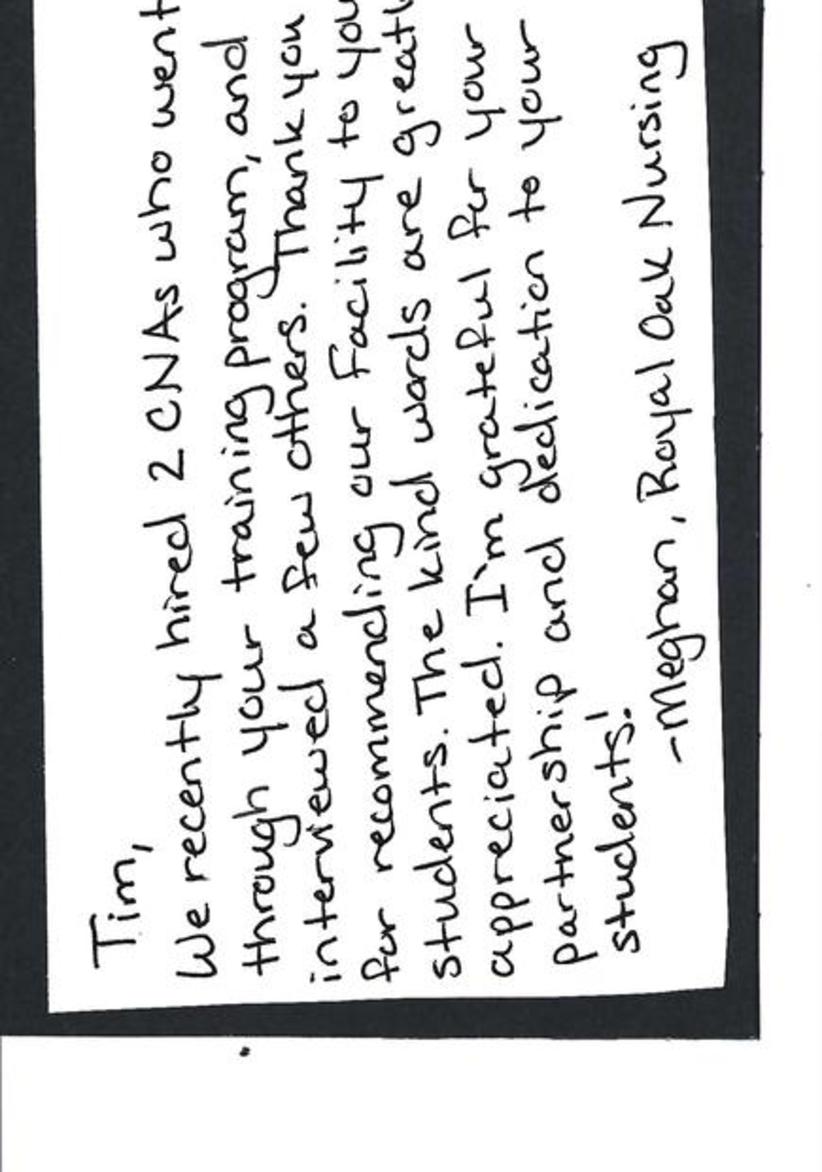 Tim,
We recently hired 2 CNAs who went
through your training program, and
interviewed a few others. Thank you
for recommending our facility to you
students. The kind words are greatl
appreciated. I'm grateful for your
partnership and dedication to your
students!
-Meghan, Royal Oak Nursing